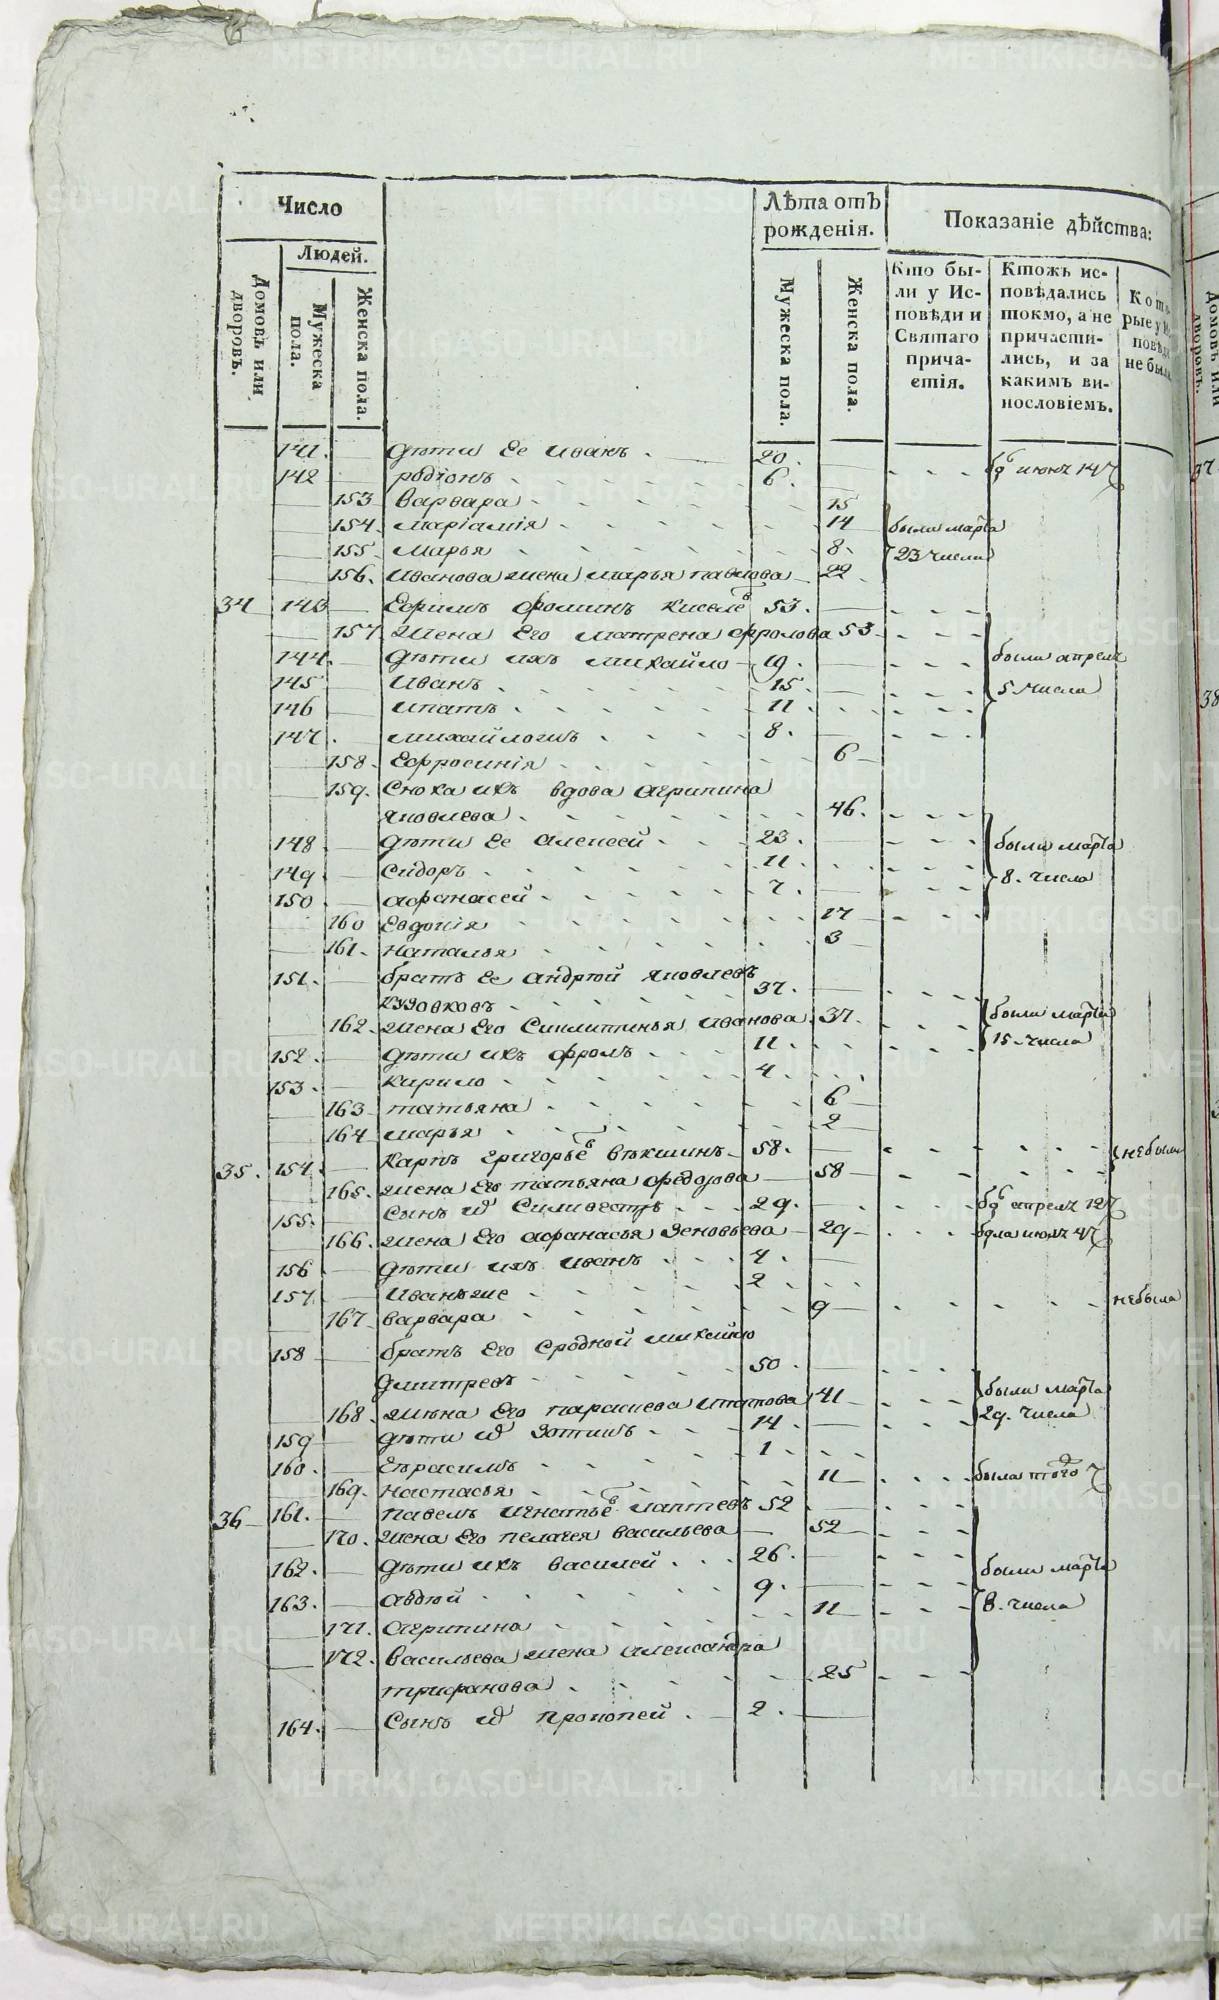 Число
Людей.
Домовъ или дворовъ.
Мужеска пола.
Женска пола.
Лѣта отъ рожденія.
Мужеска пола.
Женска пола.
Показаніе дѣйства:
Кто бы-
ли у Ис-
повѣди и
Святаго
прича-
стія.
Ктожъ ис-
повѣдались
токмо, а не
причасти-
лись, и за
какимъ ви-
нословіемъ.
141. дѣти Ее Иванъ 20.
142 родіонъ 6.
153 варвара 15
154. маріамія 14 были марта
155 марья 8. 23 числа
156. Иванова жена марья павлова 22
34 143 Ефимъ фоминъ киселевъ 53.
157 жена Его матрена фролова 53
144. дѣти ихъ михайло 19. были апреля
145 Иванъ 15 5 числа
146 ипатъ 11
147. михайложъ 8.
158. Ефросинія 6
159. Сноха ихъ вдова агрипина
яковлева 46.
148 дѣти Ее алексей 23. были марта
149 сидоръ 11 8. числа
150 афанасей 7.
160 Евдокія 17
161. наталья 3
151. братъ Ее андрѣй яковлевъ
кузовковъ 37. были марта
162. жена Его Сиклитинья иванова 37. 15 числа
152. дѣти ихъ фролъ 11
153. кирило 4
163 татьяна 6
164 марья 2
35. 154. карпъ григорьевъ векшинъ 58. небыли
165. жена Его татьяна федорова 58
155. Сынъ их Силивестръ 29. апреля 12
166. жена Его афанасья зеновьева 29 была июля 4
156 дѣти ихъ иванъ 4
157 Иванъже 2 небыла
167. варвара 9
158 братъ Его Сродной михайло
дмитревъ 50 были марта
168. жена Его парасковья ипатова 41 29. числа
159 дѣти их зотикъ 14
160. Герасимъ 1
169. настасья 11 была
36 161. павелъ игнатьевъ лаптевъ 52
170. жена Его пелагея васильева 52
162. дѣти ихъ василей 26. были марта
163. авдей 9. 8. числа
171. агрипина 11
172. васильева жена александра
трифанова 25
164. Сынъ их прокопей 2.